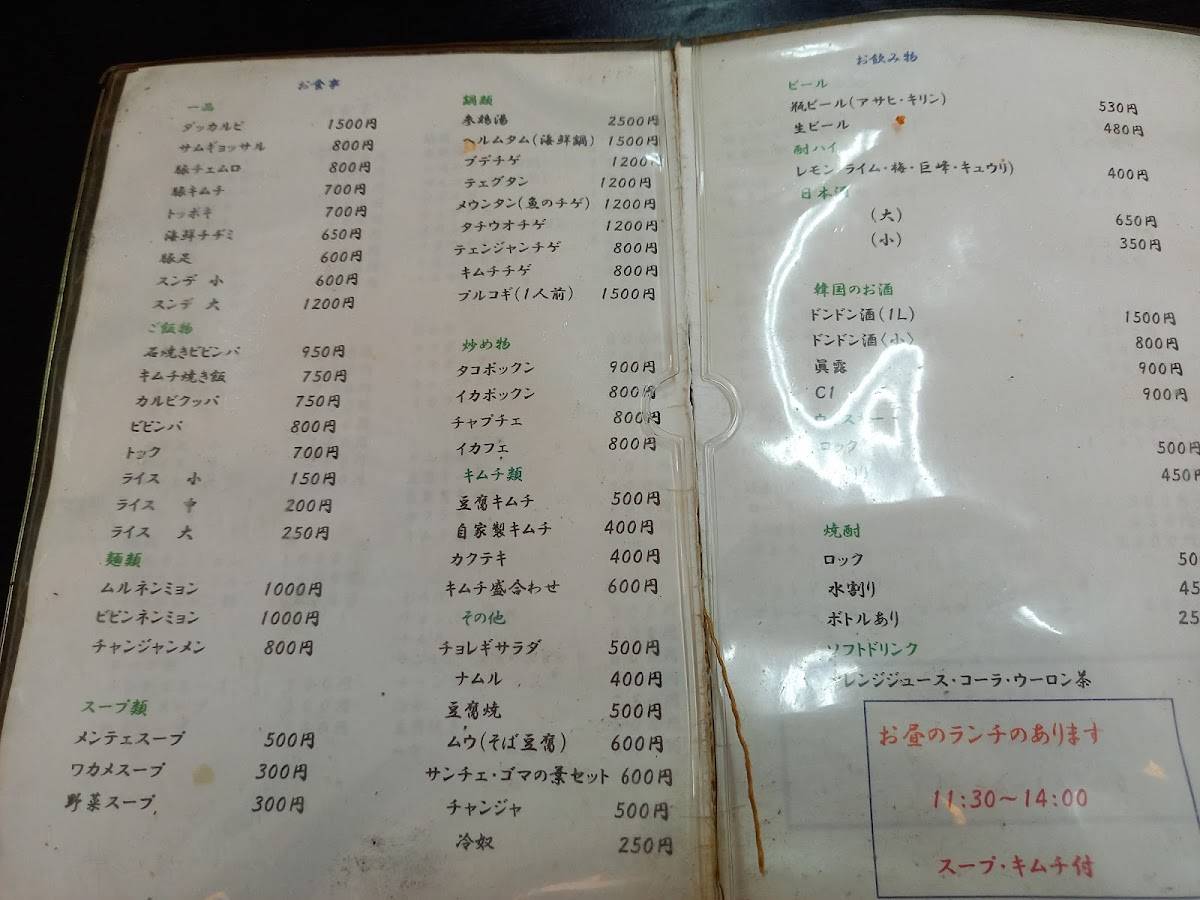 お食事
一品
ダッカルビ 1500円
サムギョッサル 800円
豚チェムロ 800円
豚キムチ 700円
トッポキ 700円
海鮮チヂミ 650円
豚足 600円
スンデ 小 600円
スンデ 大 1200円
ご飯物
石焼きビビンバ 950円
キムチ焼き飯 750円
カルビクッパ 750円
ビビンバ 800円
トック 700円
ライス 小 150円
ライス 中 200円
ライス 大 250円
麺類
ムルネンミョン 1000円
ビビンネンミョン 1000円
チャンジャンメン 800円
スープ類
メンテェスープ 500円
ワカメスープ 300円
野菜スープ 300円
鍋類
参鶏湯 2500円
ヘルムタム(海鮮鍋) 1500円
プデチゲ 1200円
テェグタン 1200円
メウンタン(魚のチゲ) 1200円
タチウオチゲ 1200円
テェンジャンチゲ 800円
キムチチゲ 800円
プルコギ(1人前) 1500円
炒め物
タコボックン 900円
イカボックン 800円
チャプチェ 800円
イカフェ 800円
キムチ類
豆腐キムチ 500円
自家製キムチ 400円
カクテキ 400円
キムチ盛合わせ 600円
その他
チョレギサラダ 500円
ナムル 400円
豆腐焼 500円
ムウ(そば豆腐) 600円
サンチェ・ゴマの葉セット 600円
チャンジャ 500円
冷奴 250円
お飲み物
ビール
瓶ビール(アサヒ・キリン) 530円
生ビール 480円
酎ハイ
レモン ライム・梅・巨峰・キュウリ) 400円
日本酒
(大) 650円
(小) 350円
韓国のお酒
ドンドン酒(1L) 1500円
ドンドン酒〈小〉 800円
眞露 900円
C1 900円
ロック 500円
450円
焼酎
ロック 50
水割り 45
ボトルあり 25
ソフトドリンク
レンジジュース・コーラ・ウーロン茶
お昼のランチのあります
11:30～14:00
スープ・キムチ付